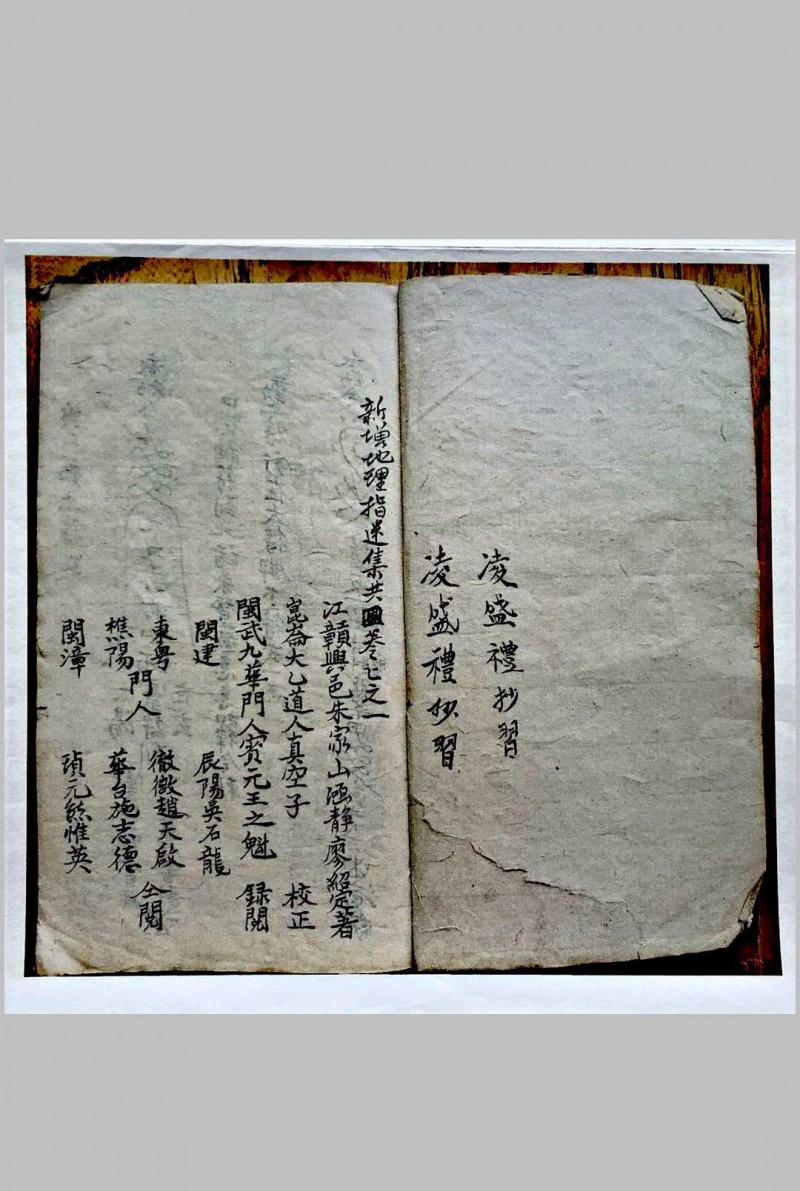 凌盛禮抄習
凌盛禮抄習
新增地理指迷集共四卷之一
江贛興邑朱家山涵靜廖紹定著
崑崙大乙道人真空子 校正
閩武九華門人賓元王之魁 録閱
閩建 辰陽吳石龍
東粤 徽徽趙天啟
樵陽 華台施志德
閩漳 瑱元熊惟英
門人 仝閱